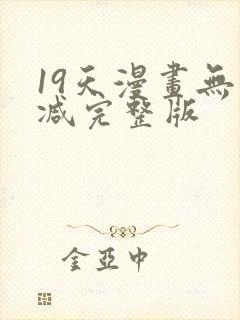 19天漫畫無
减完整版
金亚中